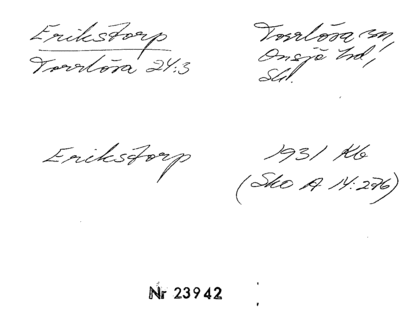 Erikstorp
Torrlösa 24:3
Torrlösa sn,
Onsjö hd,
Sk.
Erikstorp
1931 Kb
(Sko A 14:276)
Nr 23942